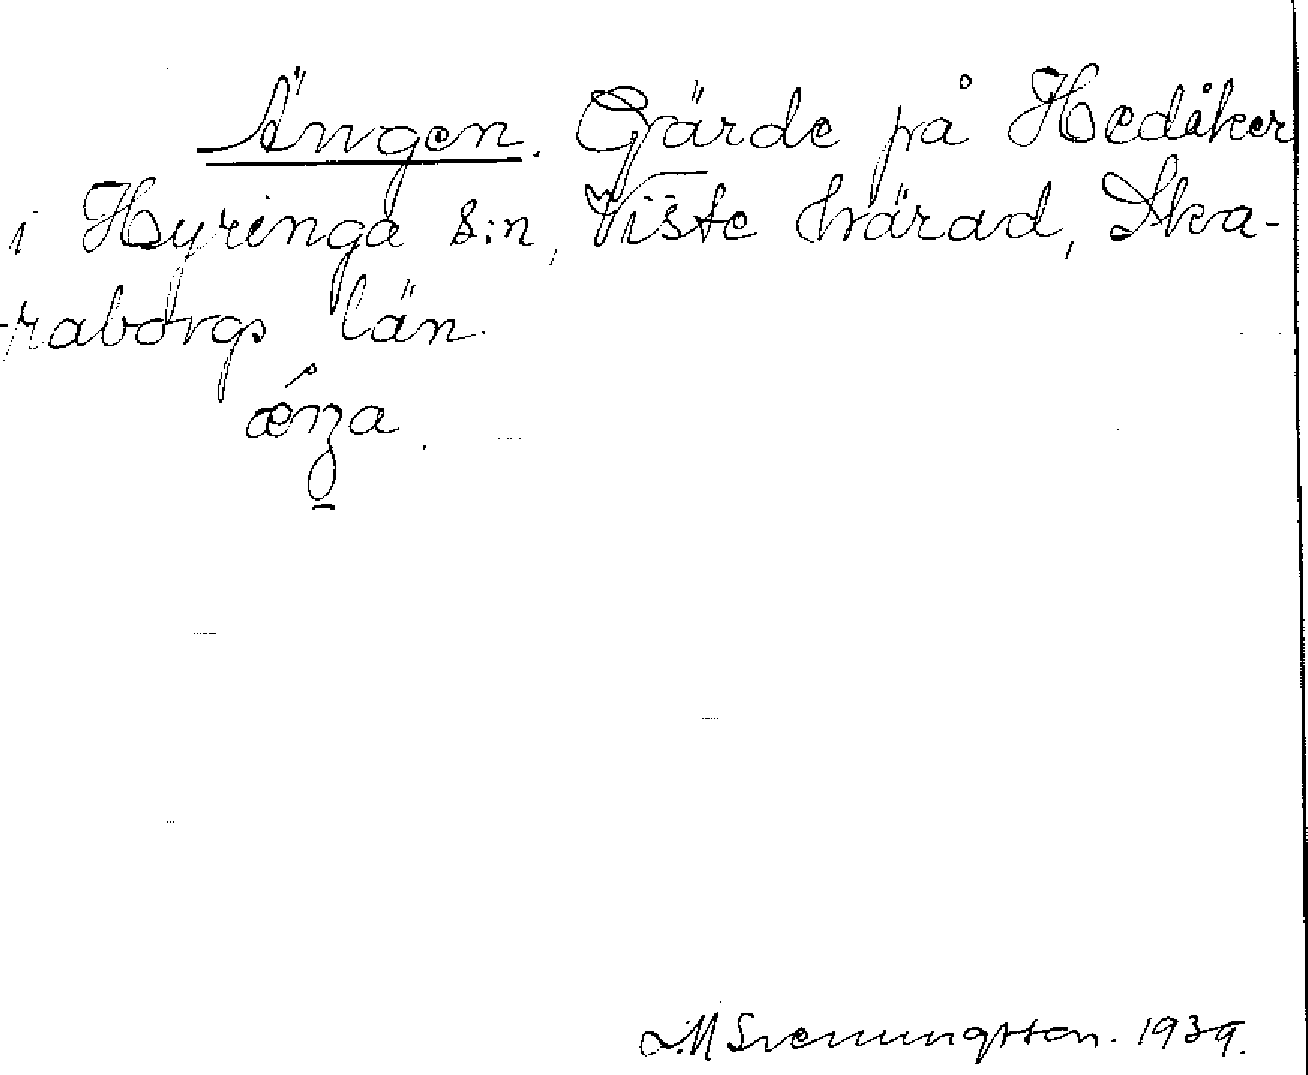 Ängen. Gärde på Hedåker
i Hyringa s:n, Viste härad, Ska-
raborgs län.
ǽŋa.
L.M Svenungsson. 1939.